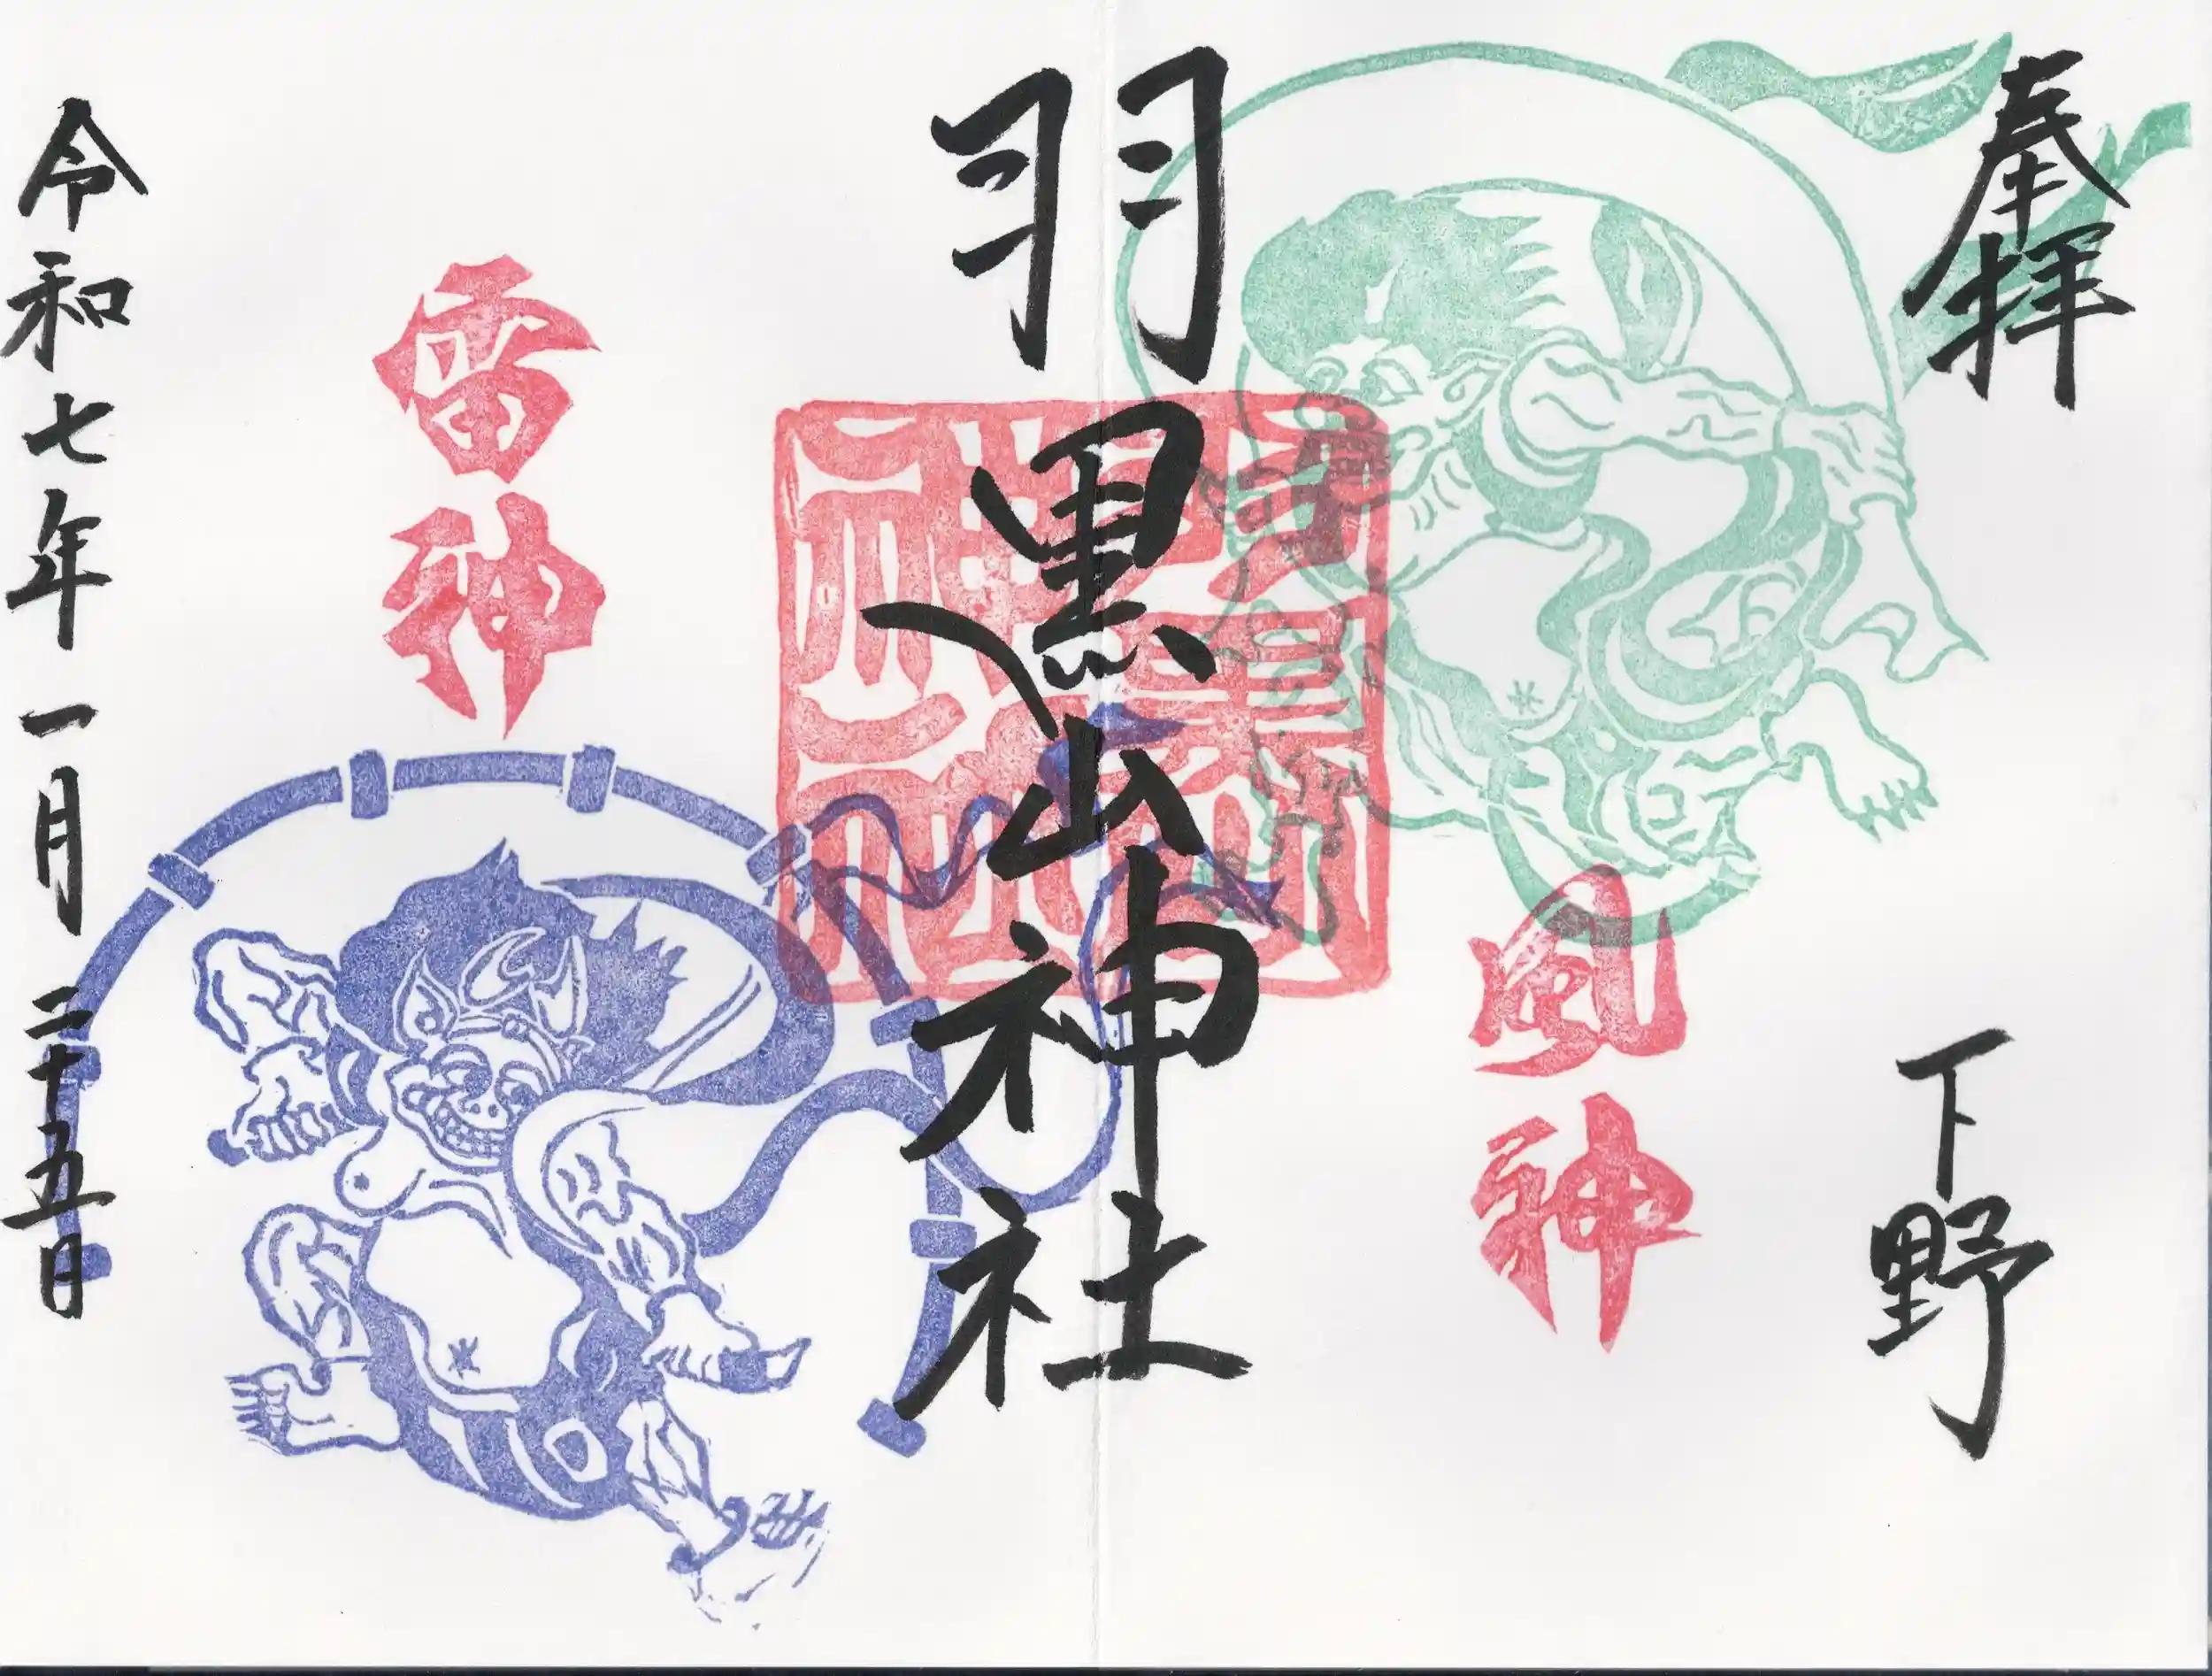 奉拝
下野
風神
羽黒山神社
羽黒山神社
雷神
令和七年一月二十五日